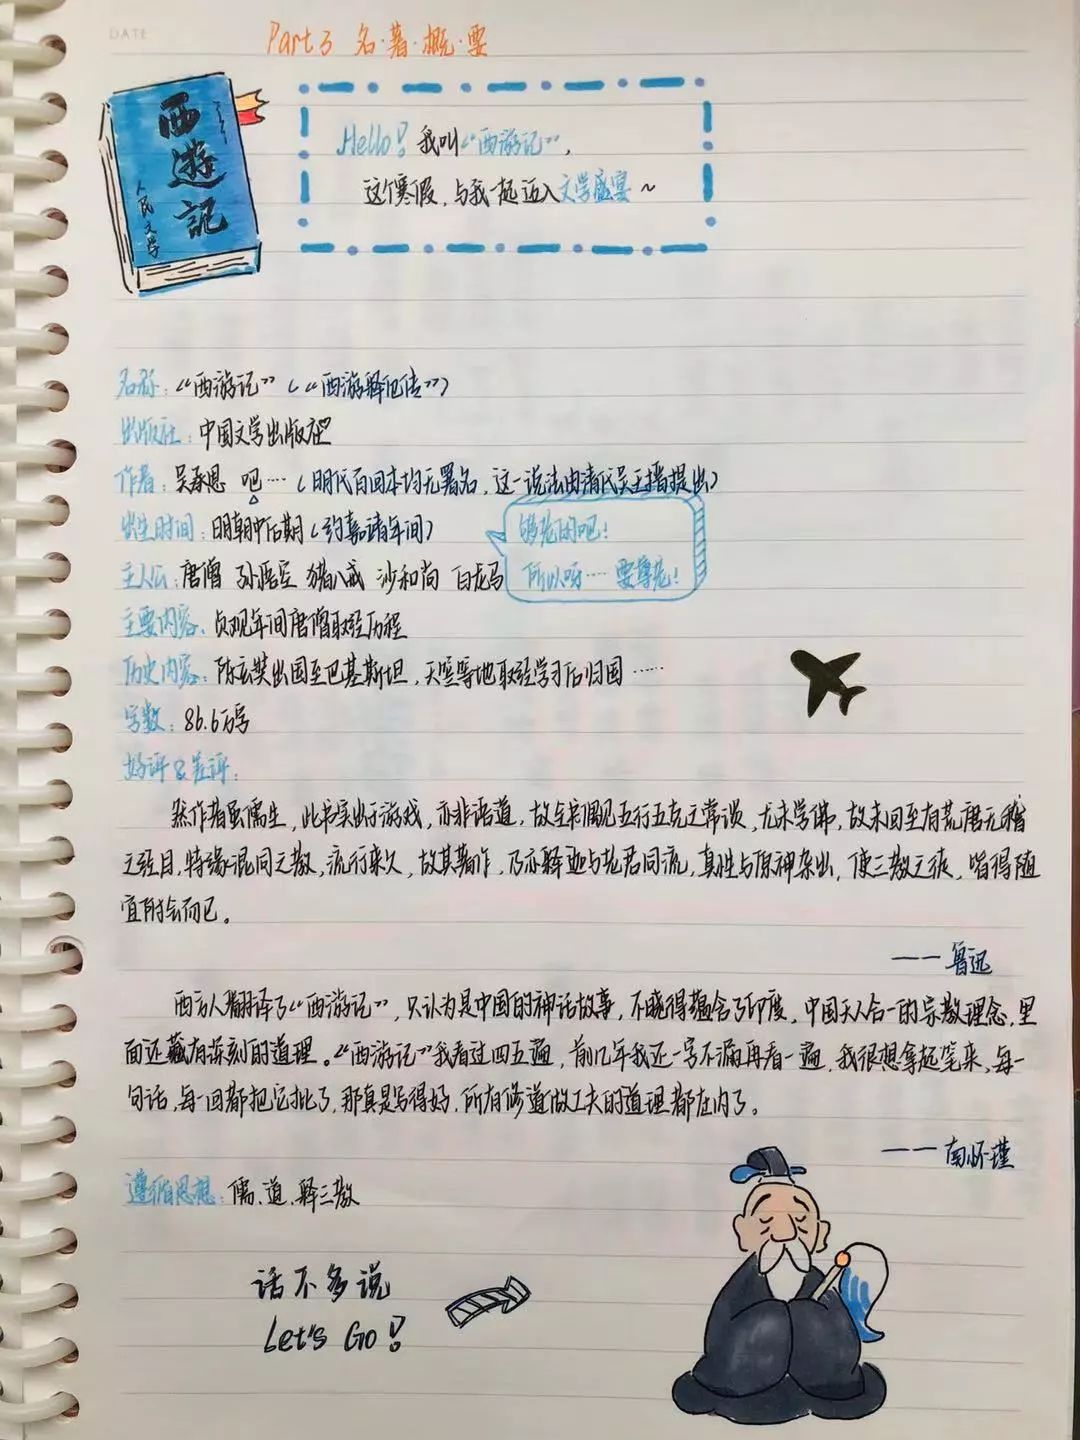 DATE
Part 3 名·著·概·要
西遊記
人民文学
Hello! 我叫“西游记”,
这个寒假,与我一起迈入文学盛宴~
名称:“西游记”(“西游释厄传”)
出版社:中国文学出版社
作者:吴承恩 吧……(明代百回本均无署名,这一说法由清代吴玉搢提出)
出生时间:明朝中后期(约嘉靖年间)
够老的吧!
主人公:唐僧 孙悟空 猪八戒 沙和尚 白龙马
所以呀……要尊老!
主要内容:贞观年间唐僧取经历程
历史内容:陈玄奘出国至巴基斯坦,天竺等地取经学习后归国……
字数:86.6万字
好评&差评:
然作者虽儒生,此书实出于游戏,亦非语道,故全书偶见五行五克之常谈,尤未学佛,故末回至有荒唐无稽
之经目,特缘混同之教,流行来久,故其著作,乃亦释迦与老君同流,真性与原神杂出,使三教之徒,皆得随
宜附会而已。
——鲁迅
西方人翻译了“西游记”,只认为是中国的神话故事,不晓得蕴含了印度,中国天人合一的宗教理念,里
面还藏有深刻的道理。“西游记”我看过四五遍,前几年我还一字不漏再看一遍,我很想拿起笔来,每一
句话,每一回都把它批了,那真是写得好,所有修道做工夫的道理都在内了。
——南怀瑾
遵循思想:儒、道、释三教
话不多说
Let's Go!